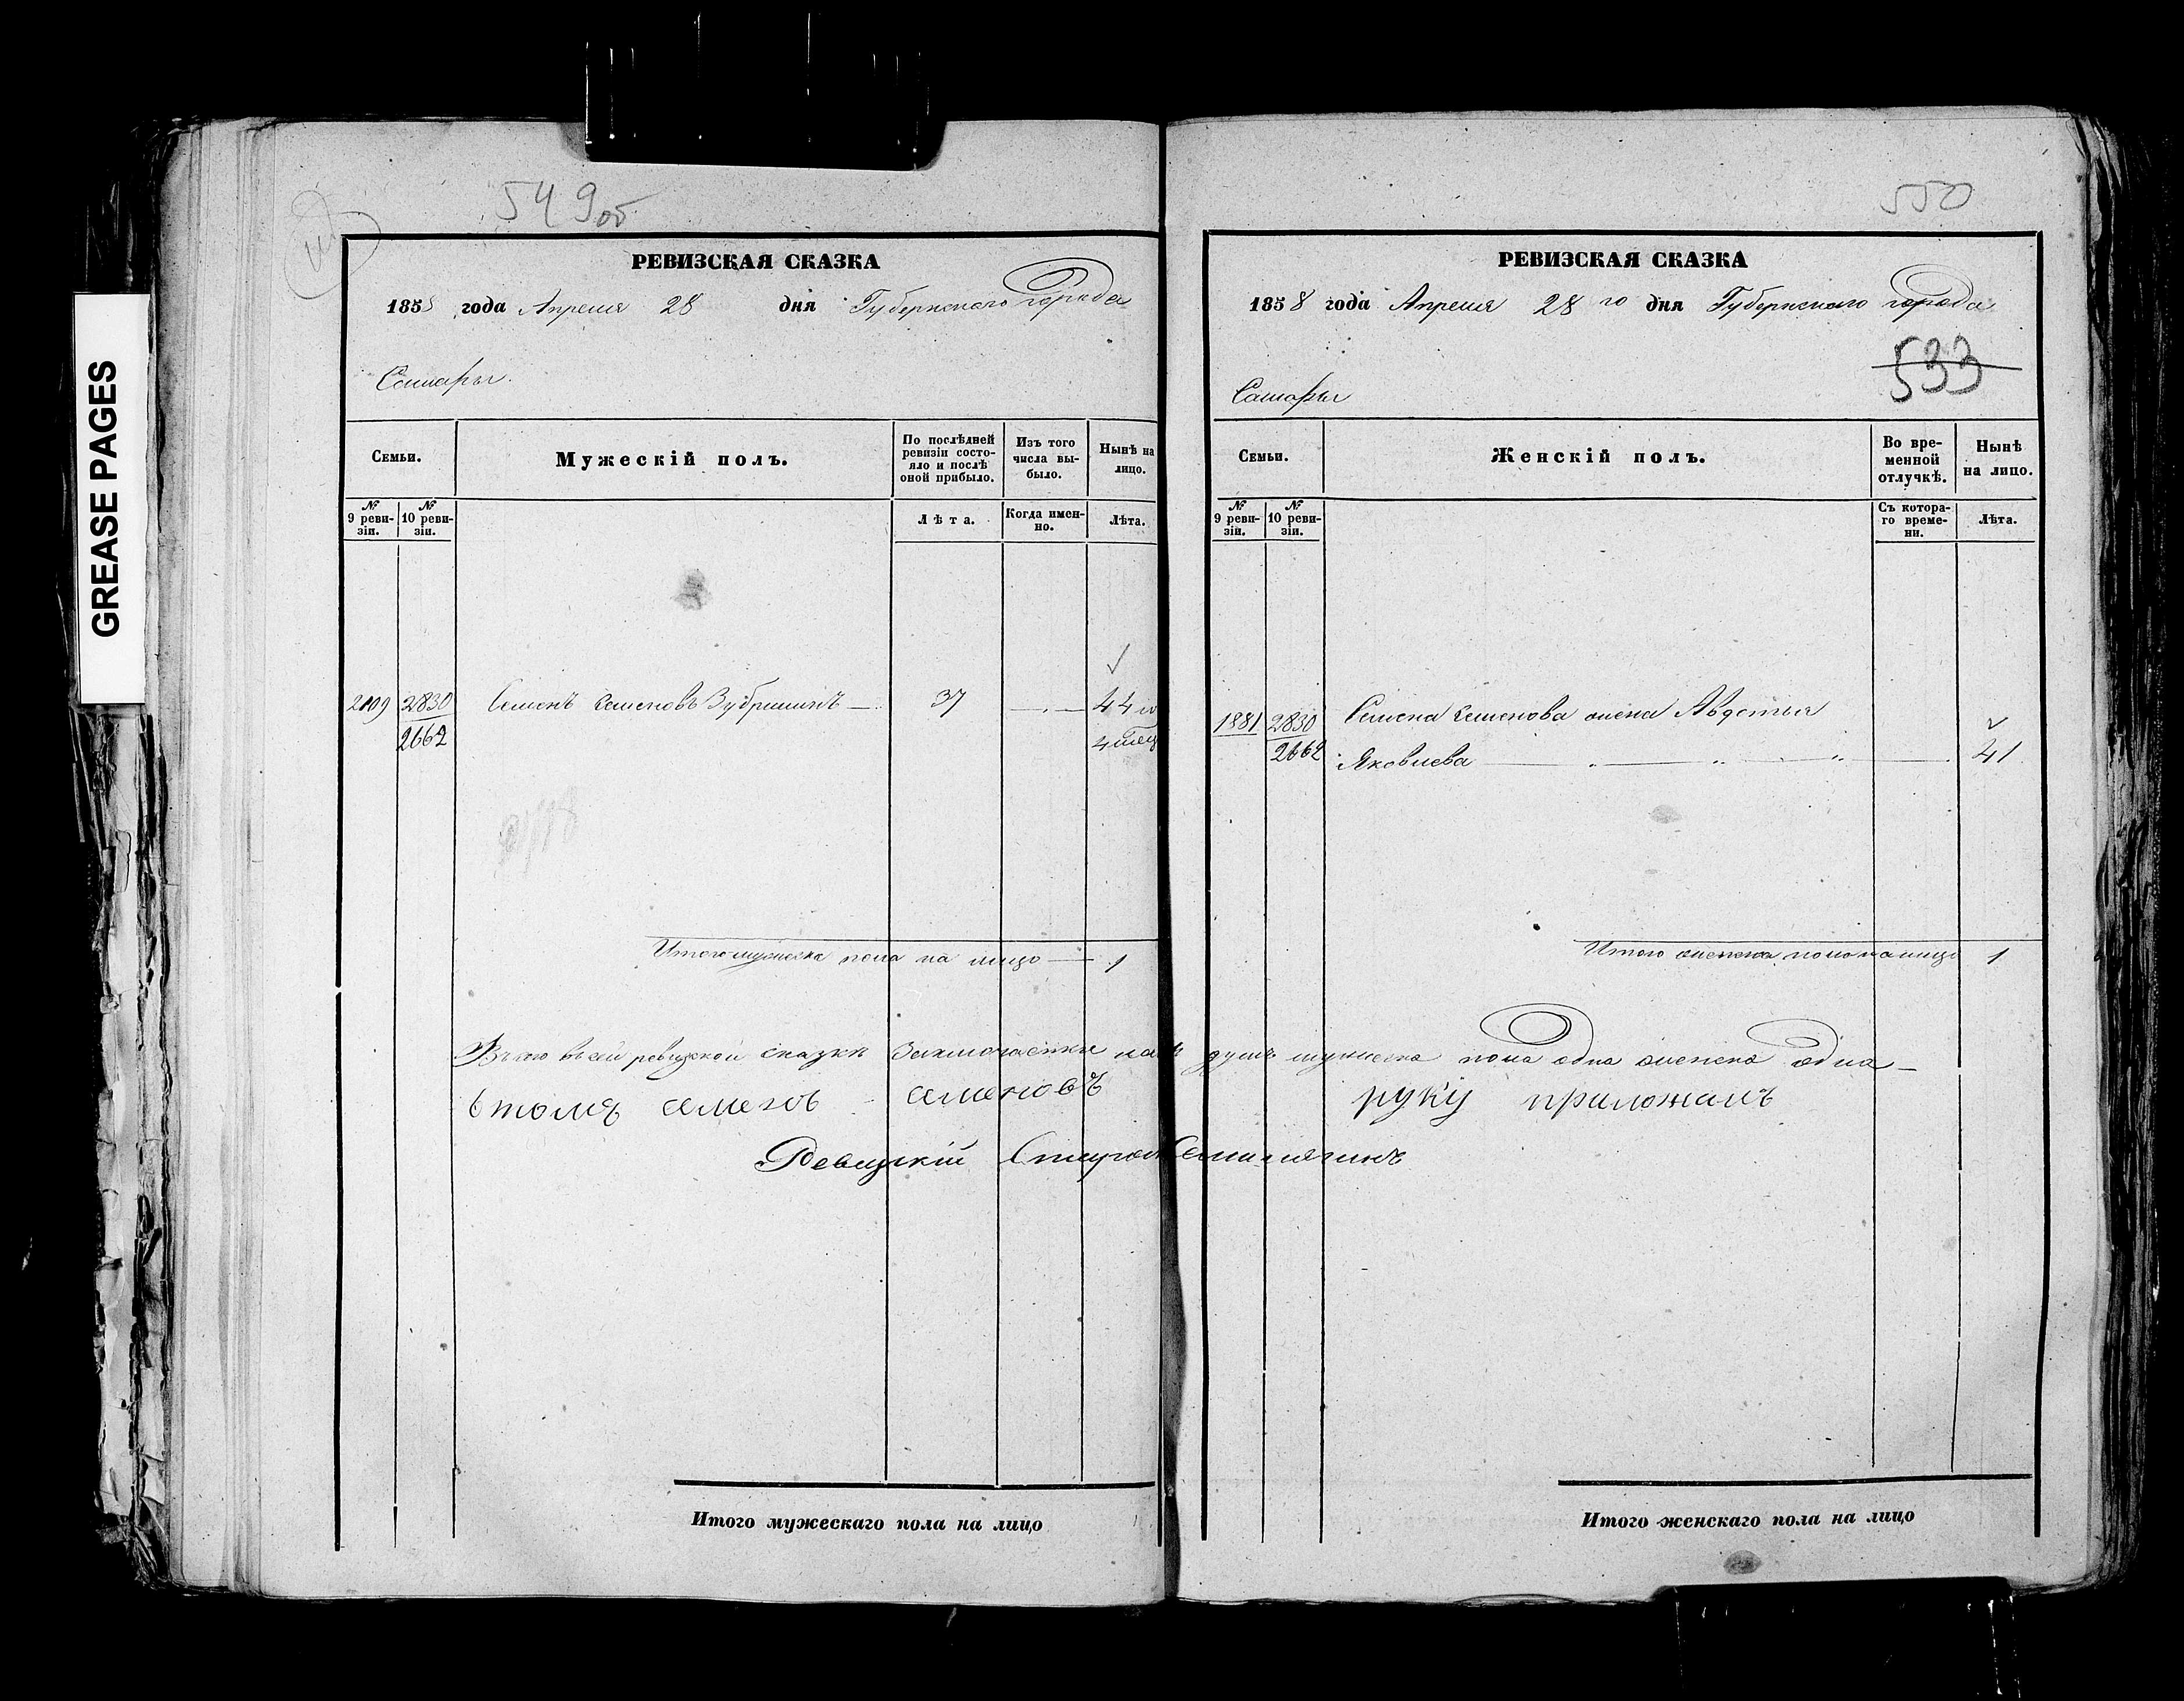 GREASE PAGES
549об
РЕВИЗСКАЯ СКАЗКА
1858 года Апреля 28 дня Губернскаго города
Самары.
Семьи.
Мужескій полъ.
По послѣдней ревизіи состояло и послѣ оной прибыло.
Изъ того числа выбыло.
Нынѣ на лицо.
№ 9 ревизіи.
№ 10 ревизіи.
Лѣта.
Когда именно.
Лѣта.
2109 2830 Семенъ Семеновъ 37 44 и
2662 4 мец
Итого мужеска пола на лицо 1
550
РЕВИЗСКАЯ СКАЗКА
1858 года Апреля 28 го дня Губернскаго города
533
Самары
Семьи.
Женскій полъ.
Во временной отлучкѣ.
Нынѣ на лицо.
№ 9 ревизіи.
№ 10 ревизіи.
Съ котораго времени.
Лѣта.
1881 2830 Семена Семенова жена Авдотья
2662 Яковлева 41
Итого женска пола на лицо 1
въ сей ревизской сказки Заключается душъ мужеска пола одна женска одна
Семеновъ руку приложилъ
Ревизкій
Итого мужескаго пола на лицо
Итого женскаго пола на лицо